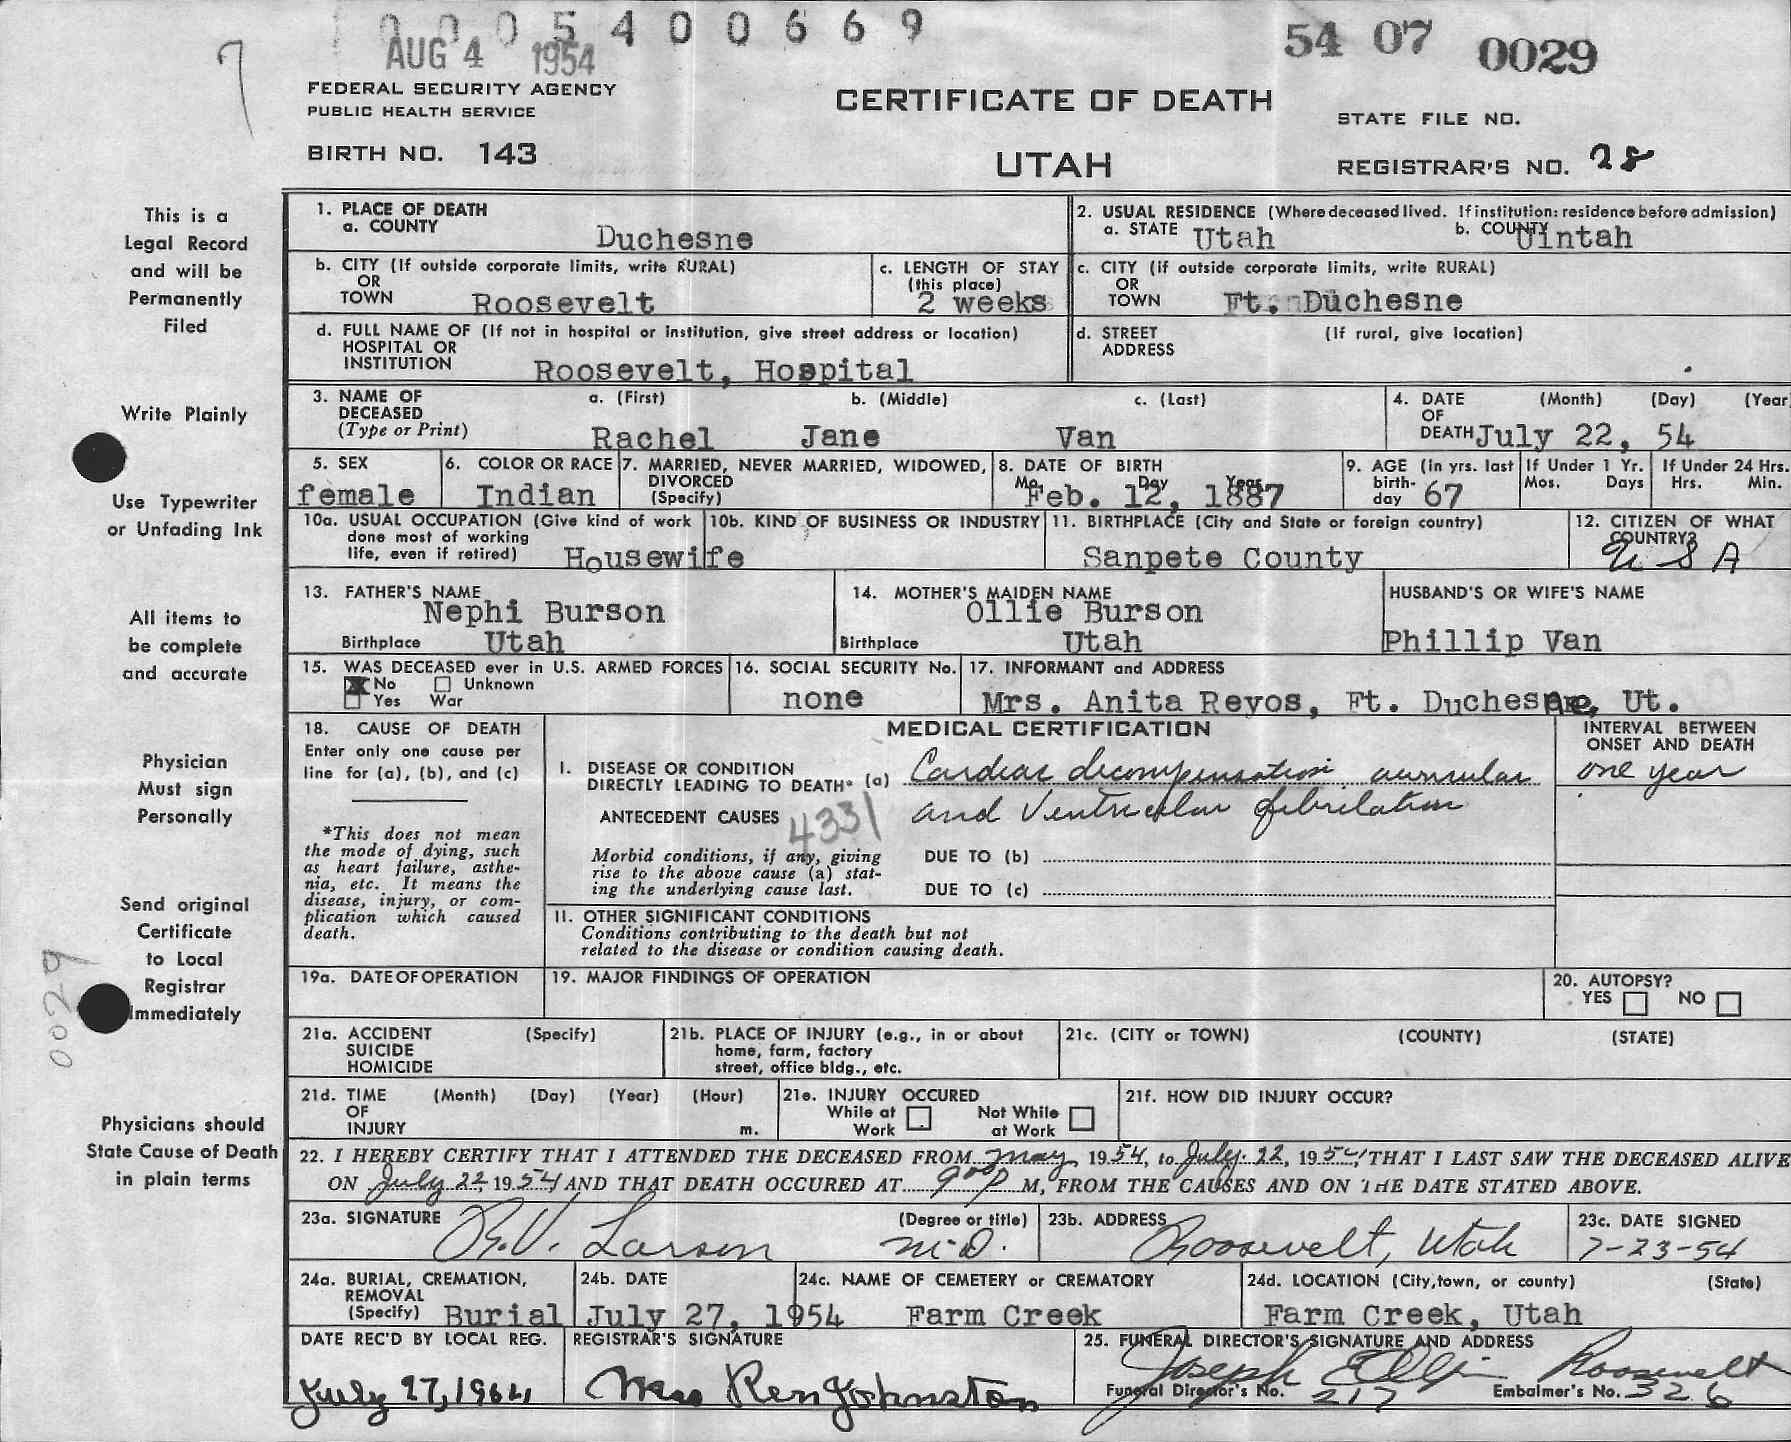 0005400669
AUG 4 1954
54 07 0029
7
FEDERAL SECURITY AGENCY
PUBLIC HEALTH SERVICE
BIRTH NO. 143
CERTIFICATE OF DEATH
UTAH
STATE FILE NO.
REGISTRAR'S NO. 28
This is a
Legal Record
and will be
Permanently
Filed
Write Plainly
Use Typewriter
or Unfading Ink
All items to
be complete
and accurate
Physician
Must sign
Personally
Send original
Certificate
to Local
Registrar
Immediately
0029
Physicians should
State Cause of Death
in plain terms
1. PLACE OF DEATH
a. COUNTY Duchesne
2. USUAL RESIDENCE (Where deceased lived. If institution: residence before admission)
a. STATE Utah b. COUNTY Uintah
b. CITY (If outside corporate limits, write RURAL)
OR
TOWN Roosevelt
c. LENGTH OF STAY
(this place)
2 weeks
c. CITY (if outside corporate limits, write RURAL)
OR
TOWN Ft. Duchesne
d. FULL NAME OF (If not in hospital or institution, give street address or location)
HOSPITAL OR
INSTITUTION Roosevelt, Hospital
d. STREET (If rural, give location)
ADDRESS
3. NAME OF a. (First) b. (Middle) c. (Last)
DECEASED
(Type or Print) Rachel Jane Van
4. DATE (Month) (Day) (Year
OF
DEATH July 22, 54
5. SEX
female
6. COLOR OR RACE
Indian
7. MARRIED, NEVER MARRIED, WIDOWED,
DIVORCED
(Specify)
8. DATE OF BIRTH
Mo. Day Year
Feb. 12, 1887
9. AGE (in yrs. last
birth-
day 67
If Under 1 Yr.
Mos. Days
If Under 24 Hrs.
Hrs. Min.
10a. USUAL OCCUPATION (Give kind of work
done most of working
life, even if retired) Housewife
10b. KIND OF BUSINESS OR INDUSTRY
11. BIRTHPLACE (City and State or foreign country)
Sanpete County
12. CITIZEN OF WHAT
COUNTRY?
U S A
13. FATHER'S NAME
Nephi Burson
Birthplace Utah
14. MOTHER'S MAIDEN NAME
Ollie Burson
Birthplace Utah
HUSBAND'S OR WIFE'S NAME
Phillip Van
15. WAS DECEASED ever in U.S. ARMED FORCES
No Unknown
Yes War
16. SOCIAL SECURITY No.
none
17. INFORMANT and ADDRESS
Mrs. Anita Reyos, Ft. Duchesne, Ut.
18. CAUSE OF DEATH
Enter only one cause per
line for (a), (b), and (c)
*This does not mean
the mode of dying, such
as heart failure, asthe-
nia, etc. It means the
disease, injury, or com-
plication which caused
death.
MEDICAL CERTIFICATION
INTERVAL BETWEEN
ONSET AND DEATH
I. DISEASE OR CONDITION
DIRECTLY LEADING TO DEATH* (a) Cardiac decompensation auricular one year
and Ventricular fibrilation
ANTECEDENT CAUSES 4331
Morbid conditions, if any, giving
rise to the above cause (a) stat-
ing the underlying cause last.
DUE TO (b)
DUE TO (c)
II. OTHER SIGNIFICANT CONDITIONS
Conditions contributing to the death but not
related to the disease or condition causing death.
19a. DATE OF OPERATION
19. MAJOR FINDINGS OF OPERATION
20. AUTOPSY?
YES NO
21a. ACCIDENT (Specify)
SUICIDE
HOMICIDE
21b. PLACE OF INJURY (e.g., in or about
home, farm, factory
street, office bldg., etc.
21c. (CITY or TOWN) (COUNTY) (STATE)
21d. TIME (Month) (Day) (Year) (Hour)
OF
INJURY m.
21e. INJURY OCCURED
While at Work Not While at Work
21f. HOW DID INJURY OCCUR?
22. I HEREBY CERTIFY THAT I ATTENDED THE DECEASED FROM May 1954, to July 22, 1954, THAT I LAST SAW THE DECEASED ALIVE
ON July 22, 1954 AND THAT DEATH OCCURED AT 9 00 P M, FROM THE CAUSES AND ON THE DATE STATED ABOVE.
23a. SIGNATURE (Degree or title)
R.V. Larson M.D.
23b. ADDRESS
Roosevelt, Utah
23c. DATE SIGNED
7-23-54
24a. BURIAL, CREMATION,
REMOVAL
(Specify) Burial
24b. DATE
July 27, 1954
24c. NAME OF CEMETERY or CREMATORY
Farm Creek
24d. LOCATION (City,town, or county) (State)
Farm Creek, Utah
DATE REC'D BY LOCAL REG.
July 27, 1964
REGISTRAR'S SIGNATURE
Mrs Ren Johnston
25. FUNERAL DIRECTOR'S SIGNATURE AND ADDRESS
Joseph Roosevelt
Funeral Director's No. 217 Embalmer's No. 326